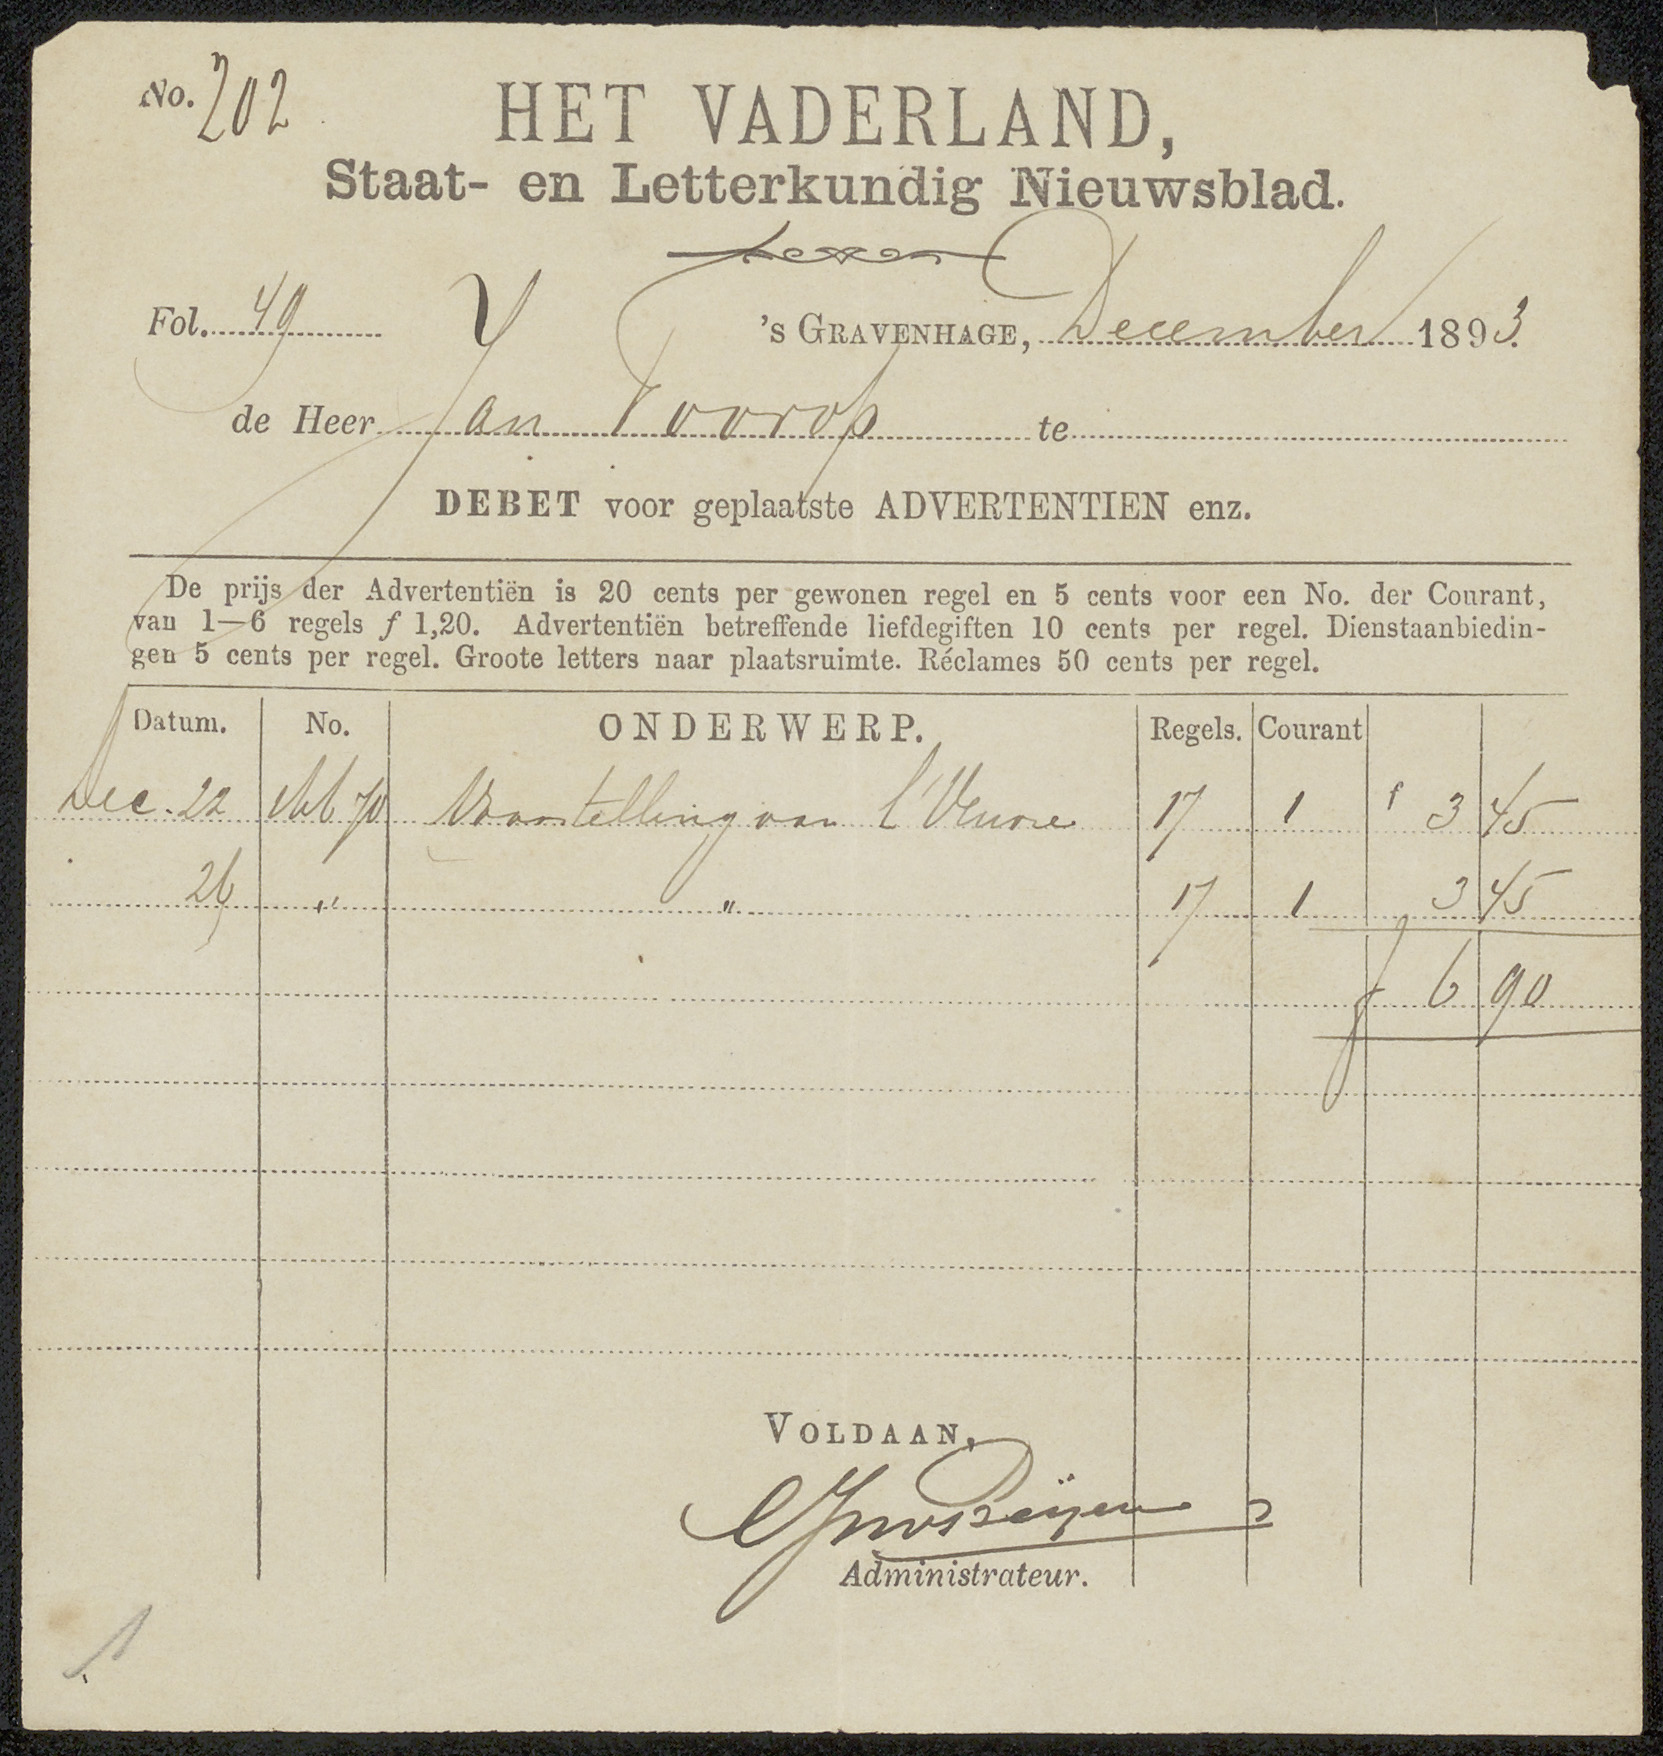 No. 202
HET VADERLAND,
Staat- en Letterkundig Nieuwsblad.
Fol. 49 's GRAVENHAGE, December 1893.
de Heer Jan Toorop te
DEBET voor geplaatste ADVERTENTIEN enz.
De prijs der Advertentiën is 20 cents per gewonen regel en 5 cents voor een No. der Courant,
van 1—6 regels f 1,20. Advertentiën betreffende liefdegiften 10 cents per regel. Dienstaanbiedin-
gen 5 cents per regel. Groote letters naar plaatsruimte. Réclames 50 cents per regel.
Datum. No. ONDERWERP. Regels. Courant
Dec. 22 Voorstelling van l'Oeuvre 17 1 f 3 45
26 " " 17 1 3 45
f 6 90
VOLDAAN,
Administrateur.
1